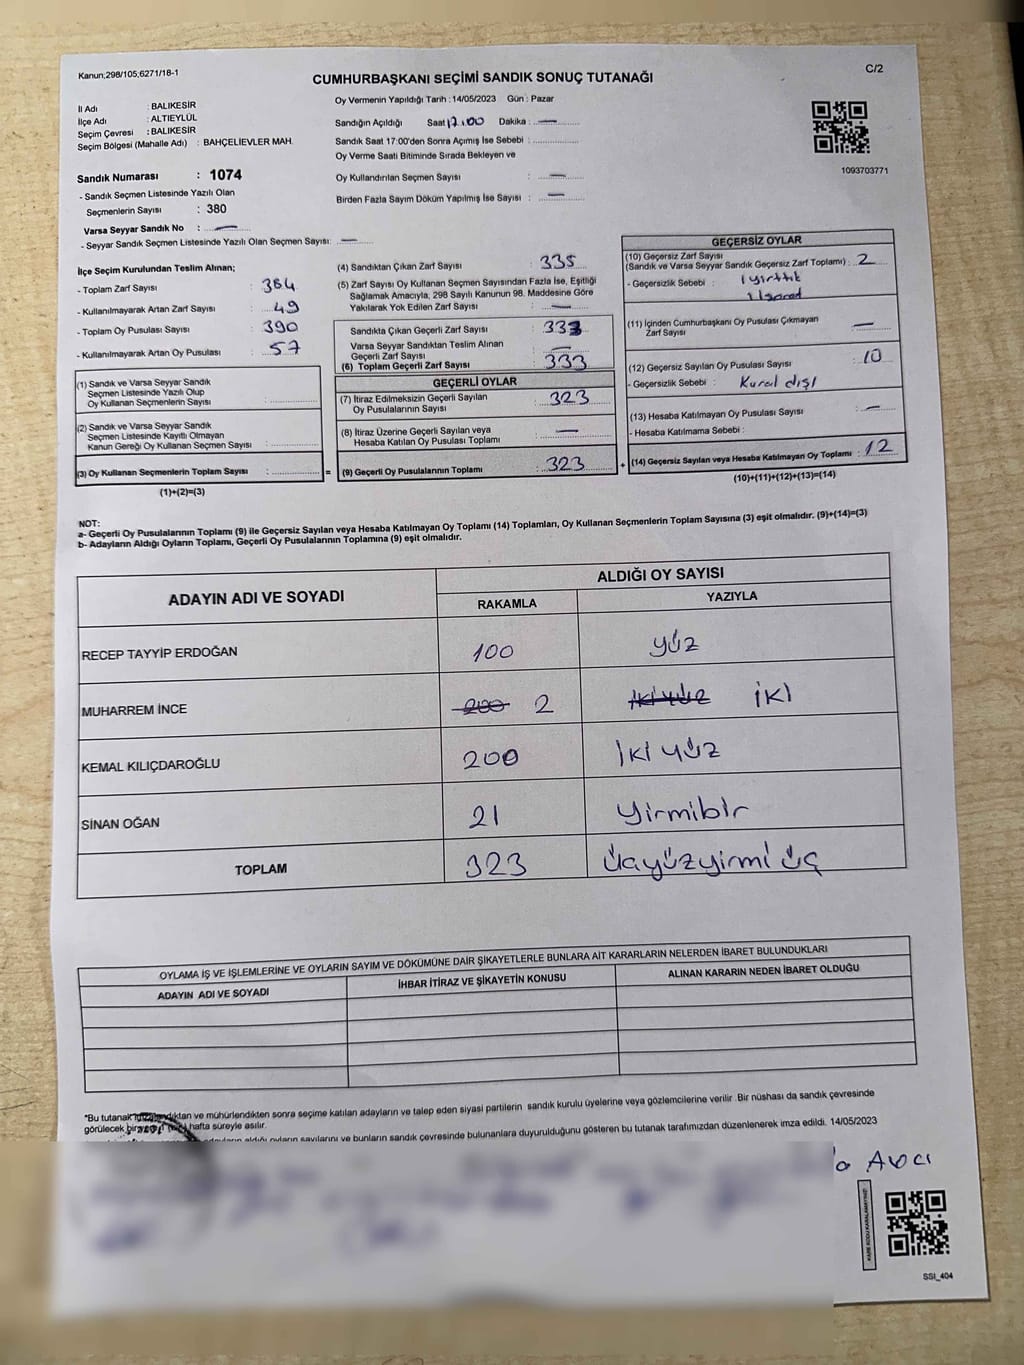 Kanun;298/105;6271/18-1
C/2
CUMHURBAŞKANI SEÇİMİ SANDIK SONUÇ TUTANAĞI
İl Adı : BALIKESİR
İlçe Adı : ALTIEYLÜL
Seçim Çevresi : BALIKESİR
Seçim Bölgesi (Mahalle Adı) : BAHÇELİEVLER MAH.
Sandık Numarası : 1074
- Sandık Seçmen Listesinde Yazılı Olan
Seçmenlerin Sayısı : 380
Varsa Seyyar Sandık No : —
- Seyyar Sandık Seçmen Listesinde Yazılı Olan Seçmen Sayısı: —
Oy Vermenin Yapıldığı Tarih : 14/05/2023 Gün : Pazar
Sandığın Açıldığı Saat 17.00 Dakika : —
Sandık Saat 17:00'den Sonra Açımış İse Sebebi :
Oy Verme Saati Bitiminde Sırada Bekleyen ve
Oy Kullandırılan Seçmen Sayısı : —
Birden Fazla Sayım Döküm Yapılmış İse Sayısı : —
1093703771
İlçe Seçim Kurulundan Teslim Alınan;
- Toplam Zarf Sayısı : 384
- Kullanılmayarak Artan Zarf Sayısı : 49
- Toplam Oy Pusulası Sayısı : 390
- Kullanılmayarak Artan Oy Pusulası : 57
(1) Sandık ve Varsa Seyyar Sandık
Seçmen Listesinde Yazılı Olup
Oy Kullanan Seçmenlerin Sayısı :
(2) Sandık ve Varsa Seyyar Sandık
Seçmen Listesinde Kayıtlı Olmayan
Kanun Gereği Oy Kullanan Seçmen Sayısı :
(3) Oy Kullanan Seçmenlerin Toplam Sayısı : =
(1)+(2)=(3)
(4) Sandıktan Çıkan Zarf Sayısı : 335
(5) Zarf Sayısı Oy Kullanan Seçmen Sayısından Fazla İse, Eşitliği
Sağlamak Amacıyla, 298 Sayılı Kanunun 98. Maddesine Göre
Yakılarak Yok Edilen Zarf Sayısı : —
Sandıkta Çıkan Geçerli Zarf Sayısı : 333
Varsa Seyyar Sandıktan Teslim Alınan
Geçerli Zarf Sayısı : —
(6) Toplam Geçerli Zarf Sayısı : 333
GEÇERLİ OYLAR
(7) İtiraz Edilmeksizin Geçerli Sayılan
Oy Pusulalarının Sayısı : 323
(8) İtiraz Üzerine Geçerli Sayılan veya
Hesaba Katılan Oy Pusulası Toplamı : —
(9) Geçerli Oy Pusulalarının Toplamı : 323 +
GEÇERSİZ OYLAR
(10) Geçersiz Zarf Sayısı
(Sandık ve Varsa Seyyar Sandık Geçersiz Zarf Toplamı) : 2
- Geçersizlik Sebebi : 1 yırttık
(11) İçinden Cumhurbaşkanı Oy Pusulası Çıkmayan
Zarf Sayısı : —
(12) Geçersiz Sayılan Oy Pusulası Sayısı : 10
- Geçersizlik Sebebi : Kural dışı
(13) Hesaba Katılmayan Oy Pusulası Sayısı : —
- Hesaba Katılmama Sebebi :
(14) Geçersiz Sayılan veya Hesaba Katılmayan Oy Toplamı : 12
(10)+(11)+(12)+(13)=(14)
NOT:
a- Geçerli Oy Pusulalarının Toplamı (9) ile Geçersiz Sayılan veya Hesaba Katılmayan Oy Toplamı (14) Toplamları, Oy Kullanan Seçmenlerin Toplam Sayısına (3) eşit olmalıdır. (9)+(14)=(3)
b- Adayların Aldığı Oyların Toplamı, Geçerli Oy Pusulalarının Toplamına (9) eşit olmalıdır.
ADAYIN ADI VE SOYADI
ALDIĞI OY SAYISI
RAKAMLA YAZIYLA
RECEP TAYYİP ERDOĞAN 100 yüz
MUHARREM İNCE 200 2 İki yüz İKİ
KEMAL KILIÇDAROĞLU 200 İki yüz
SİNAN OĞAN 21 Yirmibir
TOPLAM 323 Üçyüzyirmi üç
OYLAMA İŞ VE İŞLEMLERİNE VE OYLARIN SAYIM VE DÖKÜMÜNE DAİR ŞİKAYETLERLE BUNLARA AİT KARARLARIN NELERDEN İBARET BULUNDUKLARI
ADAYIN ADI VE SOYADI İHBAR İTİRAZ VE ŞİKAYETİN KONUSU ALINAN KARARIN NEDEN İBARET OLDUĞU
*Bu tutanak imzalandıktan ve mühürlendikten sonra seçime katılan adayların ve talep eden siyasi partilerin sandık kurulu üyelerine veya gözlemcilerine verilir. Bir nüshası da sandık çevresinde
görülecek bir hafta süreyle asılır.
aldığı oyların sayılarını ve bunların sandık çevresinde bulunanlara duyurulduğunu gösteren bu tutanak tarafımızdan düzenlenerek imza edildi. 14/05/2023
Avcı
KARE KODU KARALAMAYINIZ!
SSI_404